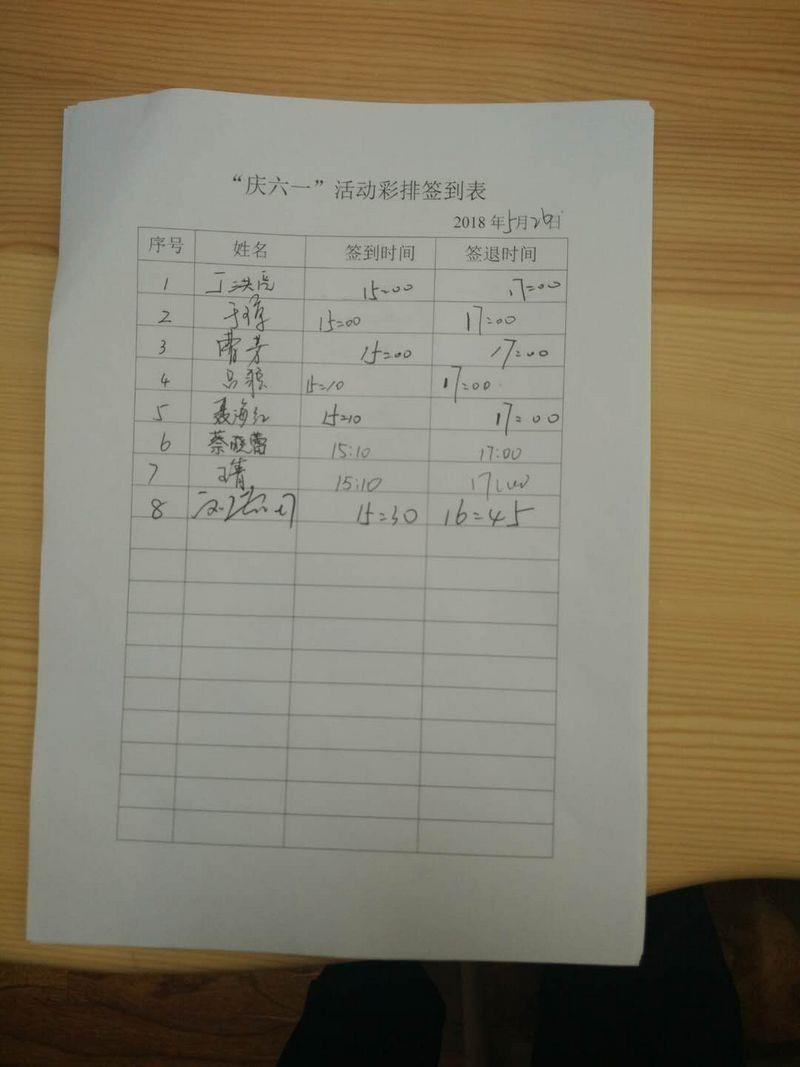 “庆六一”活动彩排签到表
2018 年5月26日
序号 姓名 签到时间 签退时间
1 丁洪亮 15:00 17:00
2 于 15:00 17:00
3 曹芳 15:00 17:00
4 吕 15:10 17:00
5 聂海红 15:10 17:00
6 蔡晓蕾 15:10 17:00
7 王菁 15:10 17:00
8 15:30 16:45